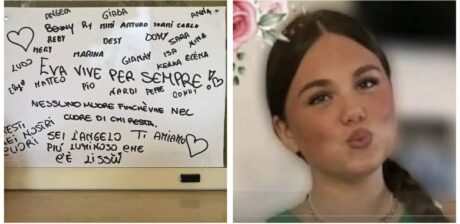 ANGELA GIADA ANNA
BENNY RY MIMÌ ARTURO SUAMI CARLO
REBY DESY DOMY SARA XINA
MERY MARINA GIANNY ISA
LUDO KEKKA ELENA
EVA VIVE PER SEMPRE!
MATTEO PIO NARDI PEPPE CONNY
NESSUNO MUORE FINCHÈ VIVE NEL
CUORE DI CHI RESTA.
RESTI NEI NOSTRI CUORI
SEI L'ANGELO TI AMIAMO
PIÙ LUMINOSO CHE
C'È LASSÙ